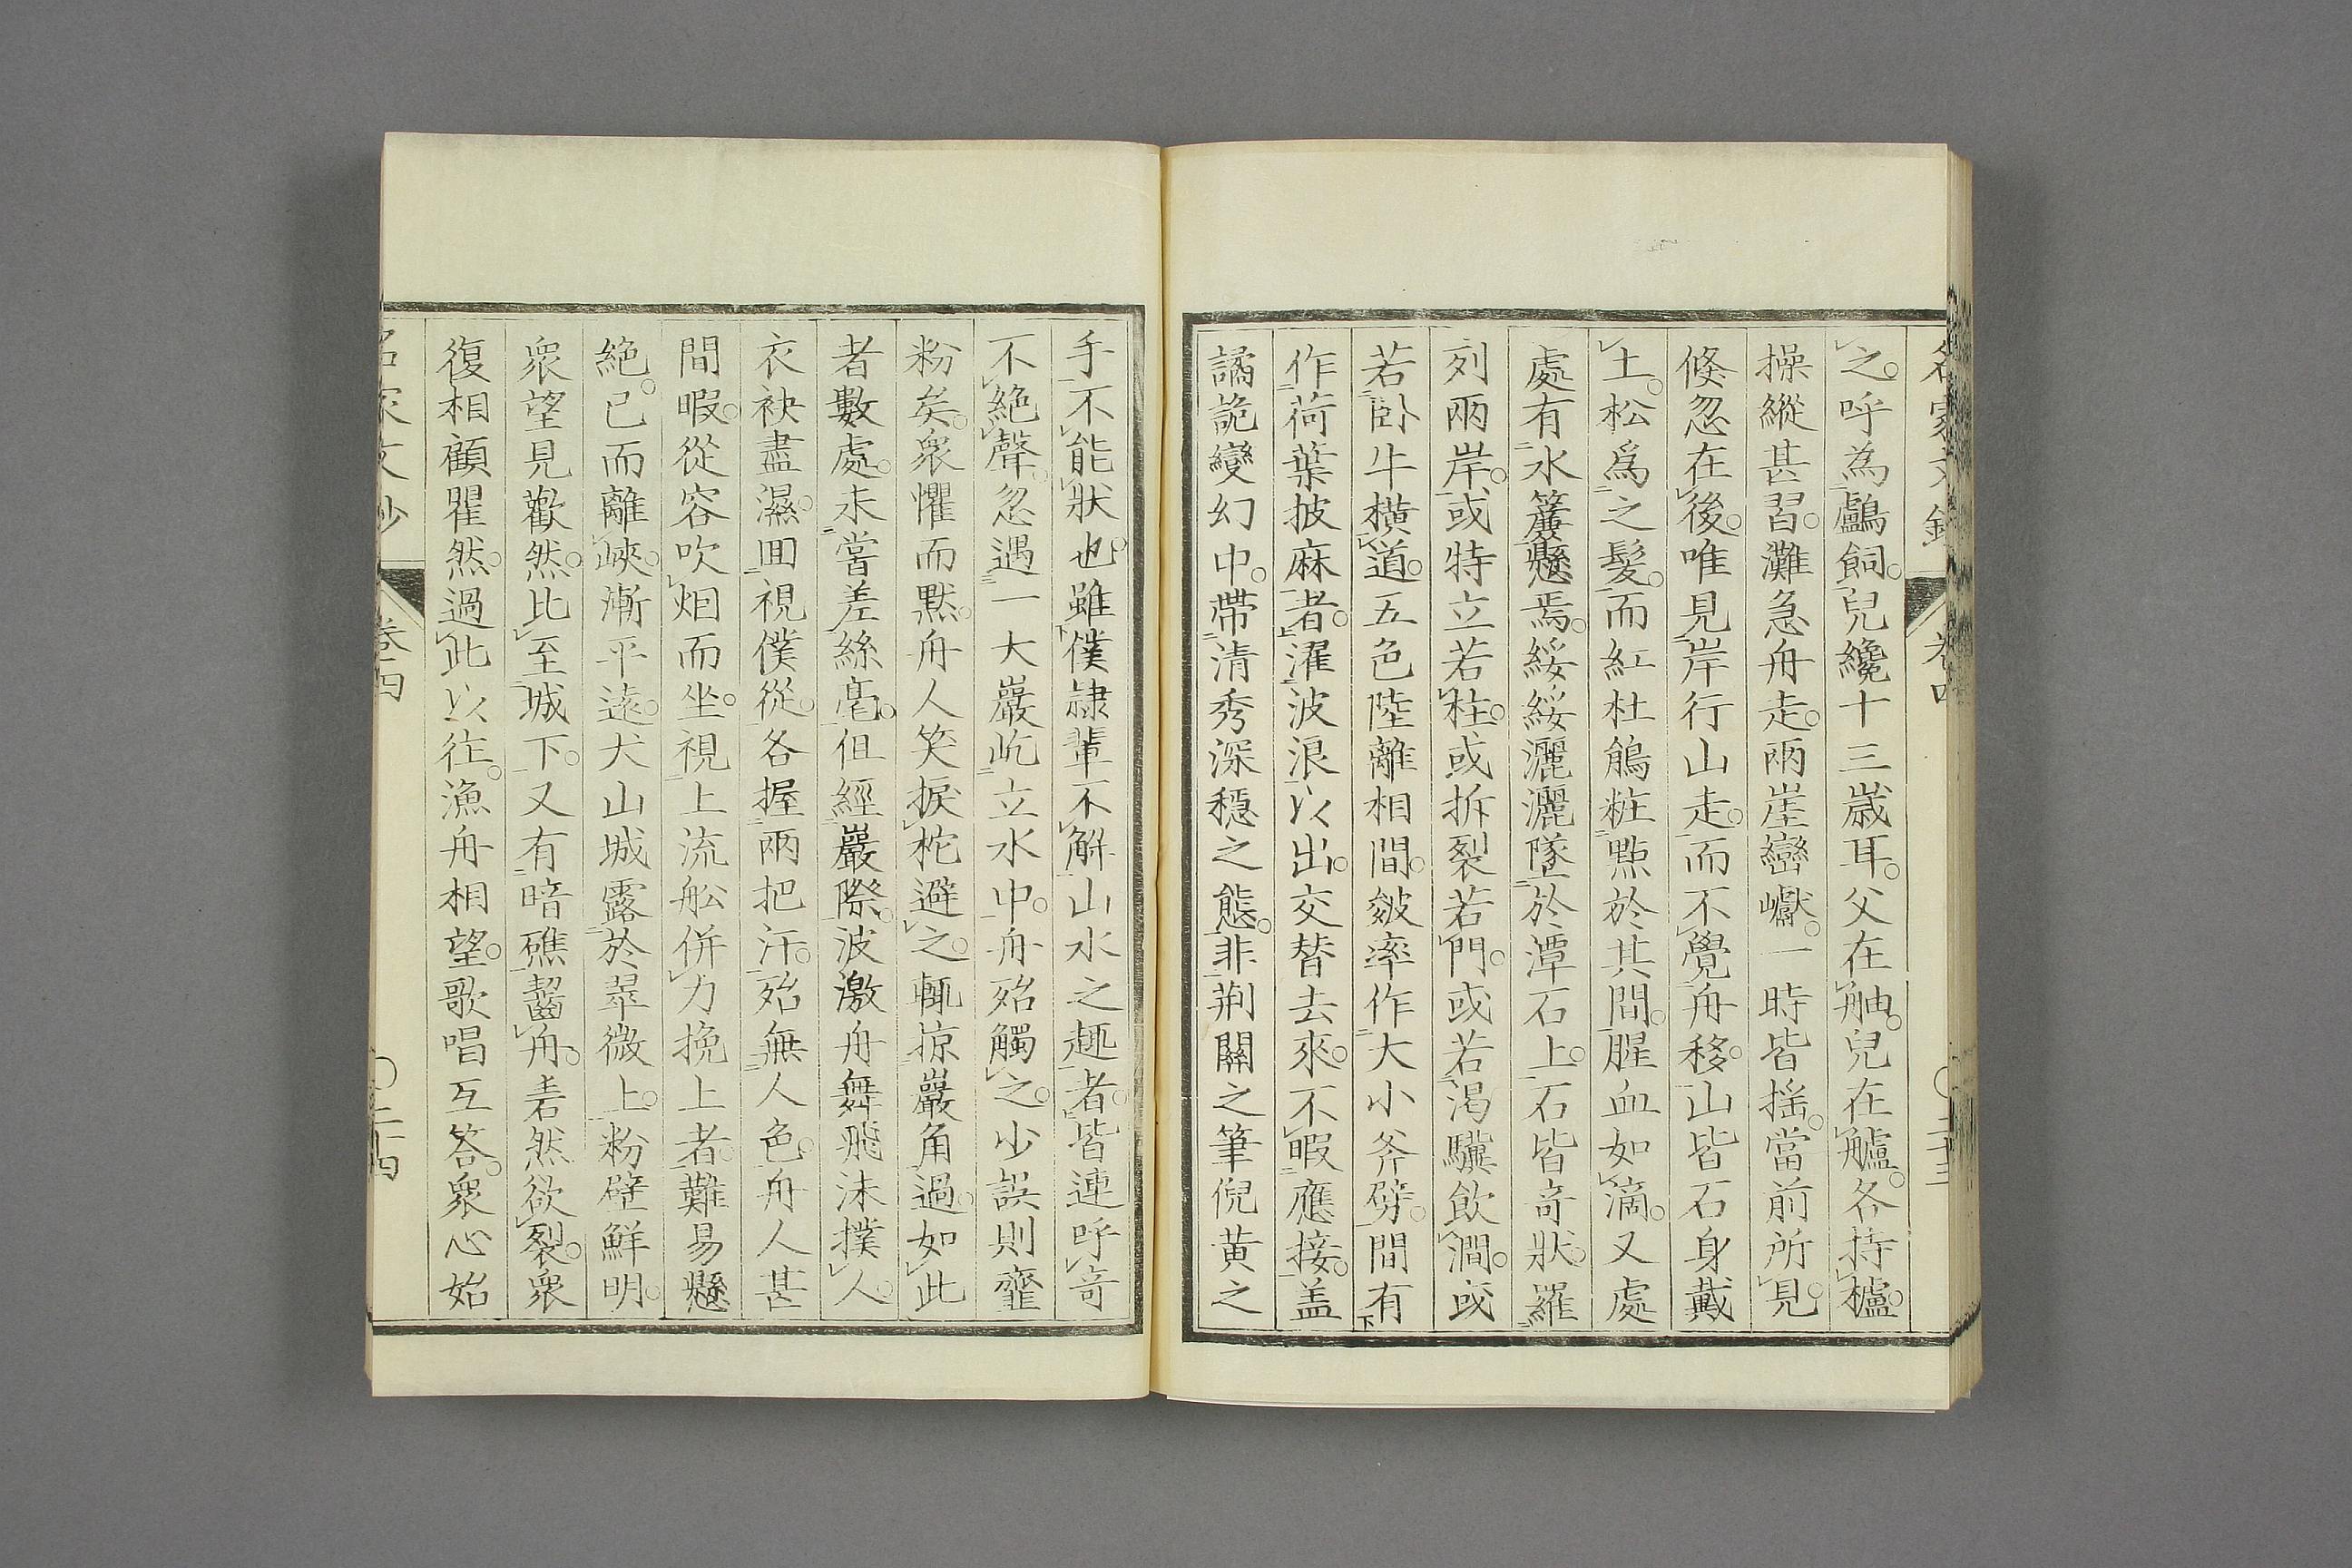 之。呼為鸕飼。兒纔十三歲耳。父在舳。兒在艫。各持櫨。
操縱甚習。灘急舟走。兩崖巒巘。一時皆搖。當前所見。
倏忽在後。唯見岸行山走。而不覺舟移。山皆石身戴
土。松爲之髮。而紅杜鵑粧點於其間。腥血如滴。又處
處有水簾懸焉。綏綏灑灑墜於潭石上。石皆奇狀。羅
列兩岸。或特立若柱。或拆裂若門。或若渴驥飲澗。或
若卧牛橫道。五色陸離相間。皴率作大小斧劈。間有
作荷葉披麻者。濯波浪以出。交替去來。不暇應接。盖
譎詭變幻中。帶清秀深穩之態。非荆關之筆倪黄之
手不能狀也。雖僕隷輩不解山水之趣者。皆連呼奇
不絕聲。忽遇一大巖屹立水中。舟殆觸之。少誤則虀
粉矣。衆懼而默。舟人笑捩柁避之。輒掠巖角過。如此
者數處。未嘗差絲毫。但經巖際。波激舟舞飛沫撲人。
衣袂盡濕。囬視僕從。各握兩把汗。殆無人色。舟人甚
間暇。從容吹烟而坐。視上流舩併力挽上者。難易懸
絕。已而離峽。漸平遠。犬山城露於翠微上。粉壁鮮明。
衆望見歡然。比至城下。又有暗礁齧舟。砉然欲裂。衆
復相顧瞿然。過此以往。漁舟相望。歌唱互答。衆心始
卷四
二十四